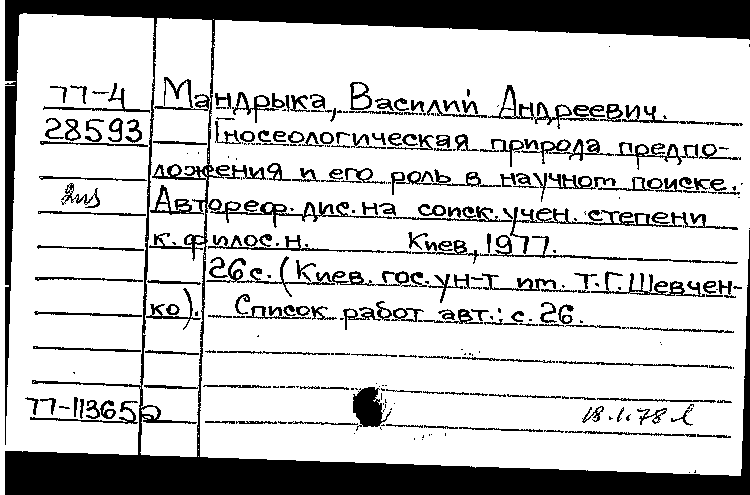 77-4 Мандрыка, Василий Андреевич.
28593 Гносеологическая природа предпо-
ложения и его роль в научном поиске.
2из Автореф. дис. на соиск. учен. степени
к. филос. н. Киев, 1977.
26 с. (Киев. гос. ун-т им. Т.Г. Шевчен-
ко). Список работ авт.: с. 26.
18.1.78